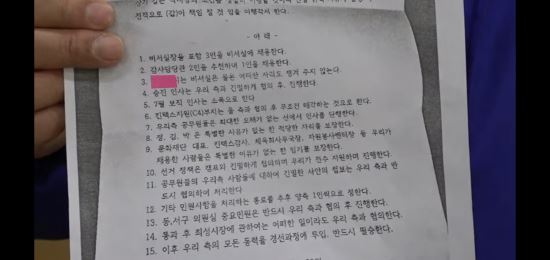 전적으로 (갑)이 책임 질 것 임을 이행각서 한다.
- 아 래 -
1. 비서실장을 포함 3인을 비서실에 채용한다.
2. 감사담당관 2인을 추천하여 1인을 채용한다.
3. 는 비서실은 물론 어떠한 자리도 챙겨 주지 않는다.
4. 승진 인사는 우리 측과 긴밀하게 협의 후, 진행한다.
5. 7월 보직 인사는 소폭으로 한다
6. 킨텍스지원(C4)부지는 을 측과 협의 후 무조건 매각하는 것으로 한다.
7. 우리측 공무원들은 최대한 오해가 없는 선에서 인사를 단행한다.
8. 정, 김, 박 은 특별한 사유가 없는 한 적당한 자리를 보장한다.
9. 문화재단 대표, 킨텍스감사, 체육회사무국장, 자원봉사센터장 등 우리가
채용한 사람들은 특별한 이유가 없는 한 임기를 보장한다.
10. 선거 정책은 캠프와 긴밀하게 협의하며 우리가 전수 지원하며 진행한다.
11. 공무원들의 우리측 사람들에 대하여 긴밀한 사안의 정보는 우리 측과 반
드시 협의하여 처리한다
12. 기타 민원사항을 처리하는 통로를 추후 양측 1인씩으로 정한다.
13. 동,서구 의원실 중요민원은 반드시 우리 측과 협의 후 진행한다.
14. 통과 후 최성시장에 관하여는 어떠한 일이라도 우리 측과 협의한다.
15. 이후 우리 측의 모든 동력을 경선과정에 투입, 반드시 필승한다.